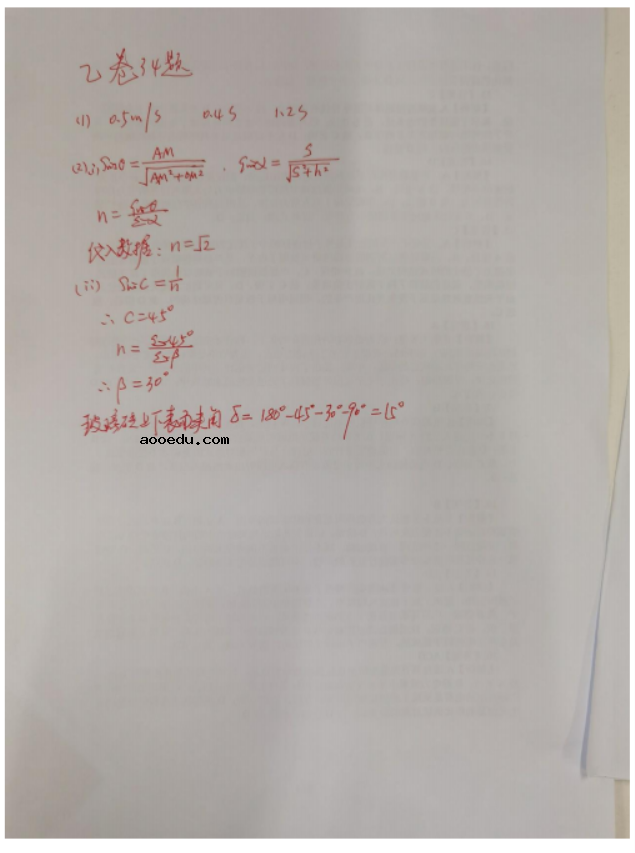 乙卷34题
(1) 0.5m/s 0.4s 1.2s
(2)(i) sinθ = AM/√(AM²+OM²) , sinα = s/√(s²+h²)
n = sinθ/sinα
代入数据: n = √2
(ii) sinC = 1/n
∴ C = 45°
n = sin45°/sinβ
∴ β = 30°
玻璃砖上下表面夹角 δ = 180°-45°-30°-90° = 15°
aooedu.com